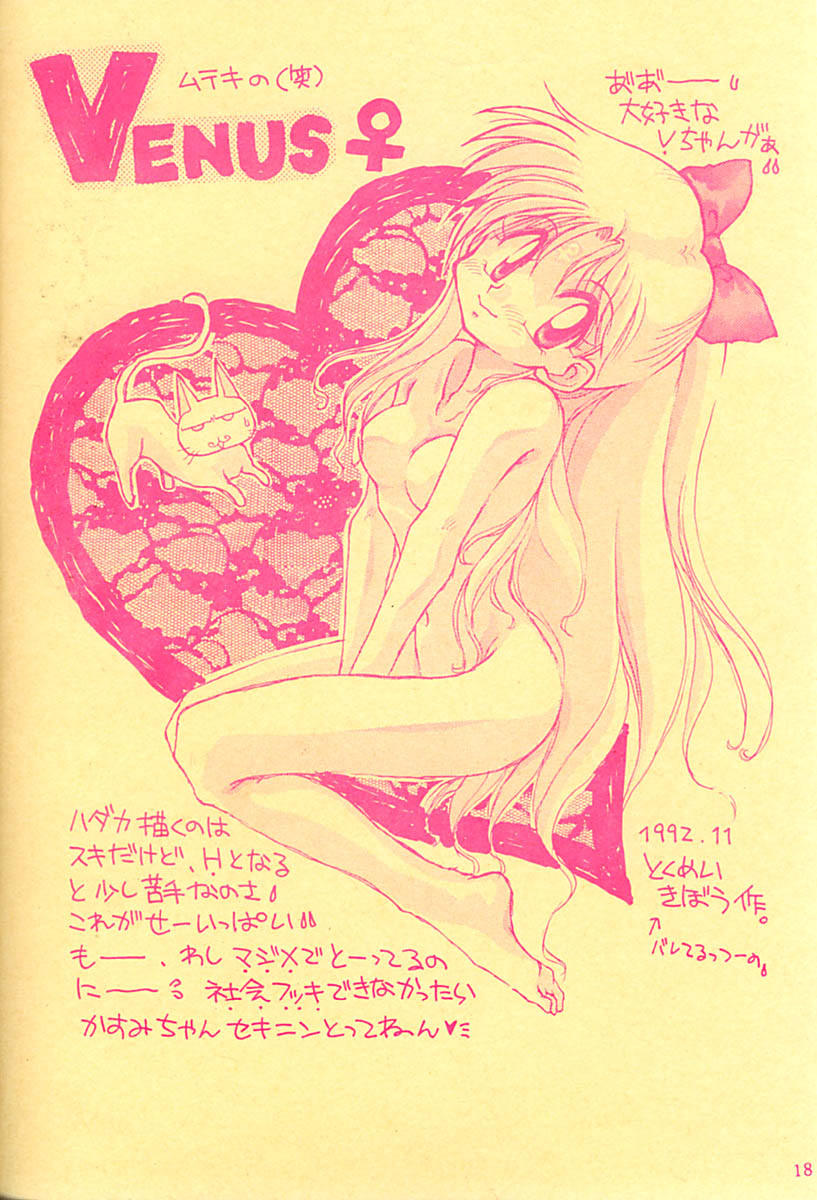 ムテキの(笑)
VENUS♀
あ゛あ゛ーー!!
大好きな
Vちゃんがぁ!!
ハダカ描くのは
スキだけど、Hとなる
と少し苦手なのさ!
これがせーいっぱい!!
もーー、わしマジメでとーってるの
にーー。社会フッキできなかったら
かすみちゃんセキニンとってねーん♥
1992.11
とくめい
きぼう作。
↑
バレてるっつーの!
18